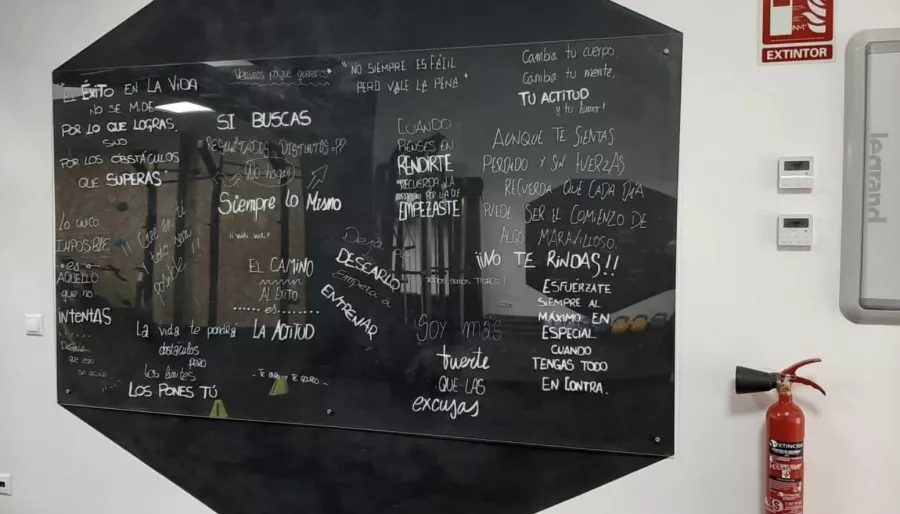 "EL ÉXITO EN LA VIDA
NO SE MIDE
POR LO QUE LOGRAS,
SINO
POR LOS OBSTÁCULOS
QUE SUPERAS"
SI BUSCAS
"RESULTADOS DISTINTOS"
NO hagas
Siempre lo Mismo
"NO SIEMPRE ES FÁCIL
PERO VALE LA PENA"
CUANDO
PIENSES EN
RENDIRTE
RECUERDA
EMPEZASTE
Cambia tu cuerpo,
Cambia tu mente,
TU ACTITUD
y tu humor!
AUNQUE TE SIENTAS
PERDIDO Y SIN FUERZAS
RECUERDA QUE CADA DÍA
PUEDE SER EL COMIENZO DE
ALGO MARAVILLOSO.
¡¡NO TE RINDAS!!
ESFUERZATE
SIEMPRE AL
MÁXIMO EN
ESPECIAL
CUANDO
TENGAS TODO
EN CONTRA.
Lo único
IMPOSIBLE
es
AQUELLO
que no
INTENTAS
¡¡Cree en ti
y todo será
posible!!
EL CAMINO
AL ÉXITO
es
LA ACTITUD
Deja de
DESEARLO
Empieza a
ENTRENAR
La vida te pondrá
obstáculos
pero
los límites
LOS PONES TÚ
SOY MÁS
fuerte
QUE LAS
excusas
EXTINTOR
legrand